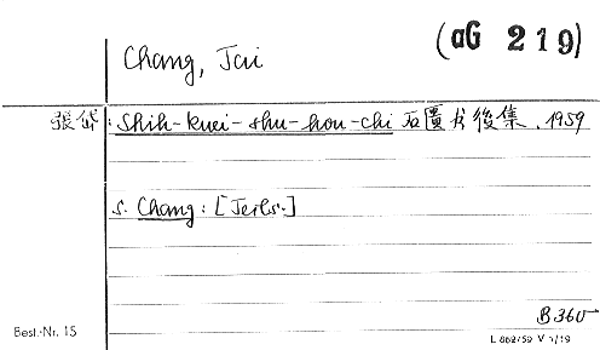 (aG 219)
Chang, Tai
張岱: Shih-kuei-shu-hou-chi 石匱书後集. 1959
s. Chang: [Teils.]
B 360
Best.-Nr. 15
L 862/59 V